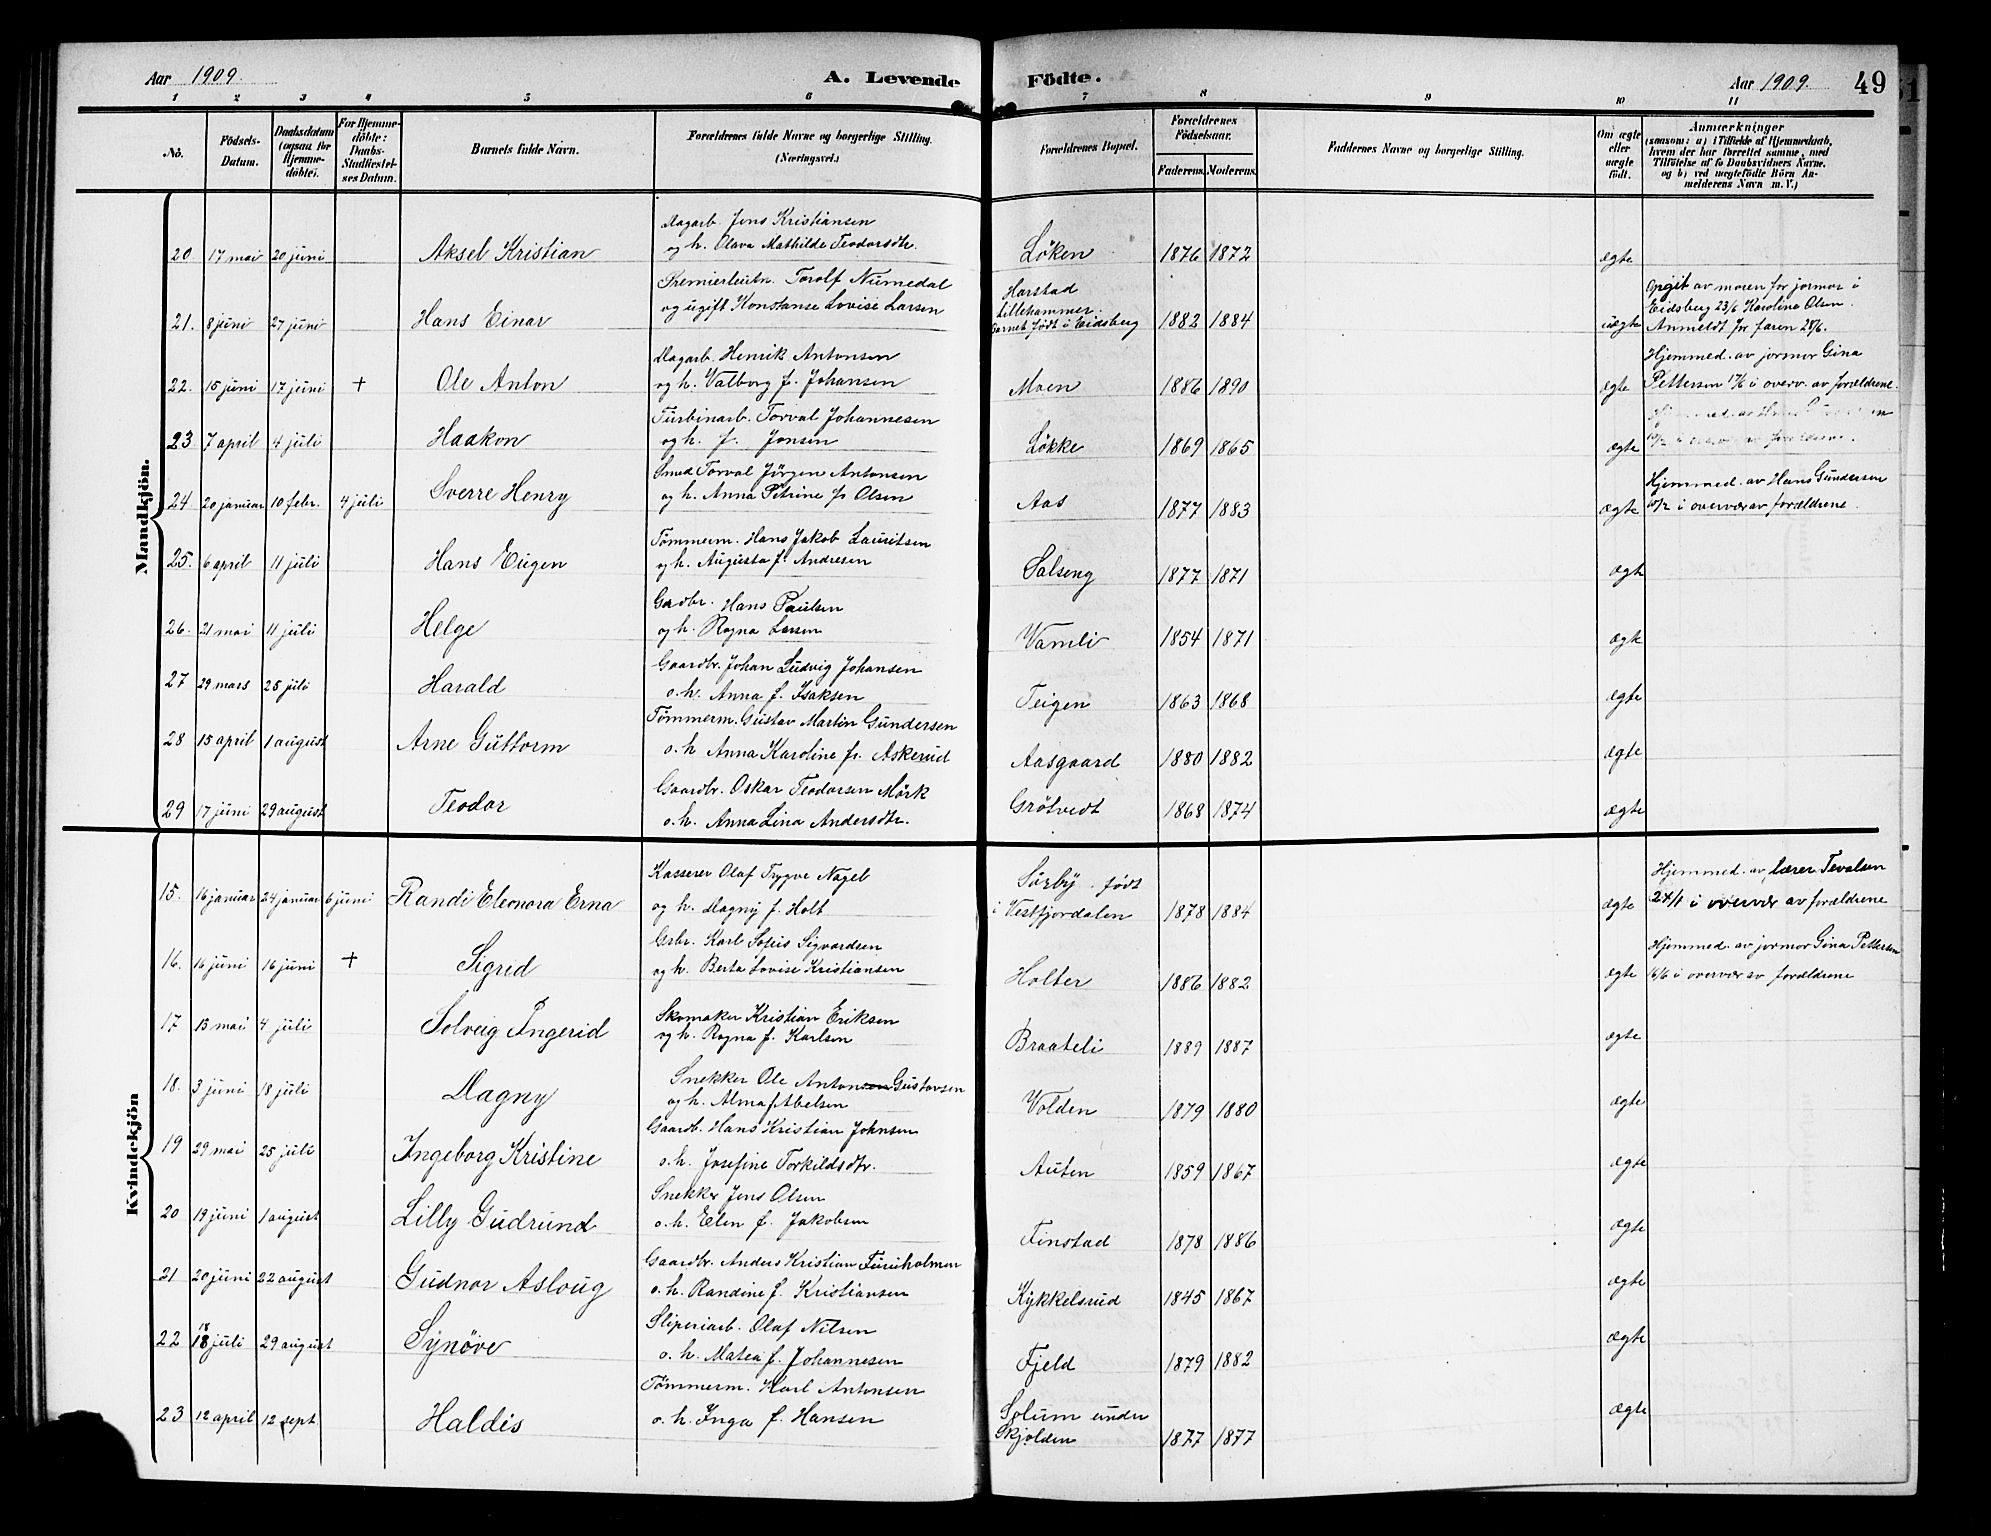 Aar 1909.
A. Levende Födte.
Aar 1909. 49
1 2 3 4 5 6 7 8 9 10 11
No.
Födsels-Datum.
Daabsdatum (ogsaa for Hjemme-döbte).
For Hjemme-döbte: Daabs-Stadfæstel-ses Datum.
Barnets fulde Navn.
Forældrenes fulde Navne og borgerlige Stilling. (Næringsvei.)
Forældrenes Bopæl.
Forældrenes Födselsaar.
Faderens. Moderens.
Faddernes Navne og borgerlige Stilling.
Om ægte eller uægte födt.
Anmærkninger (saasom: a) i Tilfælde af Hjemmedaab, hvem der har forrettet samme, med Tilföielse af to Daabsvidners Navne, og b) ved uægtefödte Börn An-melderens Navn m. V.)
Mandkjön.
20 17 mai 20 juni Aksel Kristian Dagarb. Jens Kristiansen
og h. Olava Mathilde Teodorsdtr. Löken 1876 1872 ægte
21. 8 juni 27 juni Hans Einar Premierleutn. Torolf Numedal
og ugift Konstanse Lovise Larsen Harstad
Lillehammer.
Barnet født i Eidsberg 1882 1884 uægte Opgit av moren for jormor i
Eidsberg 23/6 Karolina Olsen.
Anmeldt for faren 28/6.
22. 15 juni 17 juni + Ole Anton Dagarb. Henrik Antonsen
og h. Valborg f. Johansen Moen 1886 1890 ægte Hjemmed. av jormor Gina
Pettersen 17/6 i overv. av forældrene
23. 7 april 4 juli Haakon Turbinarb. Torval Johannesen
og h. f. Jonsen Løkke 1869 1865 ægte Hjemmed. av Hans
10/2 i overv. av forældrene.
24 20 januar 10 febr. 4 juli Sverre Henry Smed Torval Jörgen Antonsen
og h. Anna Petrine f. Olsen Aas 1877 1883 ægte Hjemmed. av Hans Gundersen
10/2 i overvær av forældrene.
25. 6 april 11 juli Hans Eugen Tömmerm. Hans Jakob Lauritsen
og h. Augusta f. Andresen Salseng 1877 1871 ægte
26. 21 mai 11 juli Helge Gardbr. Hans Paulsen
og h. Ragna Larsen Vamli 1854 1871 ægte
27 29 mars 25 juli Harald Gaardbr. Johan Ludvig Johansen
o. h. Anna f. Isaksen Teigen 1863 1868 ægte
28 15 april 1 august Arne Guttorm Tömmerm. Gustav Martin Gundersen
o. h Anna Karoline f. Askerud Aasgaard 1880 1882 ægte
29 17 juni 29 august Teodor Gaardbr. Oskar Teodorsen Mörk
o. h. Anna Lina Andersdtr. Grötvedt 1868 1874 ægte
Kvindekjön
15. 16 januar 24 januar 6 juni Randi Eleonora Erna Kasserer Olaf Trygve Nagel
og h. Dagny f. Holt Sörby. født
i Vestfjordalen 1878 1884 ægte Hjemmed. av lærer Tevalsen
24/1 i overvær av forældrene
16. 16 juni 16 juni + Sigrid Grbr. Karl Sofus Sigvardsen
og h. Berta Lovise Kristiansen Holter 1886 1882 ægte Hjemmed. av jormor Gina Pettersen
16/6 i overvær av forældrene
17 13 mai 4 juli Solveig Ingerid Skomaker Kristian Eriksen
og h. Ragna f. Karlsen Braateli 1889 1887 ægte
18. 3 juni 18 juli Dagny Snekker Ole Antonsen Gustavsen
og h. Alma f. Abelsen Volden 1879 1880 ægte
19 29 mai 25 juli Ingeborg Kristine Gaardb. Hans Kristian Johnsen
o. h. Josefine Torkildsdtr. Auten 1859 1867 ægte
20 19 juni 1 august Lilly Gudrund Snekker Jens Olsen
o. h. Elen f. Jakobsen Finstad 1878 1886 ægte
21 20 juni 22 august Gudnor Asloug Gaardbr. Anders Kristian Furuholmen
o. h. Randine f. Kristiansen Kykkelsrud 1845 1867 ægte
22 18 juli 29 august Synöve Sliperiarb. Olaf Nilsen
o. h. Matea f. Johannesen Fjeld 1879 1882 ægte
23 12 april 12 sept Haldis Tömmerm. Karl Antonsen
o. h. Inga f. Hansen Solum under
Skjolden 1877 1877 ægte